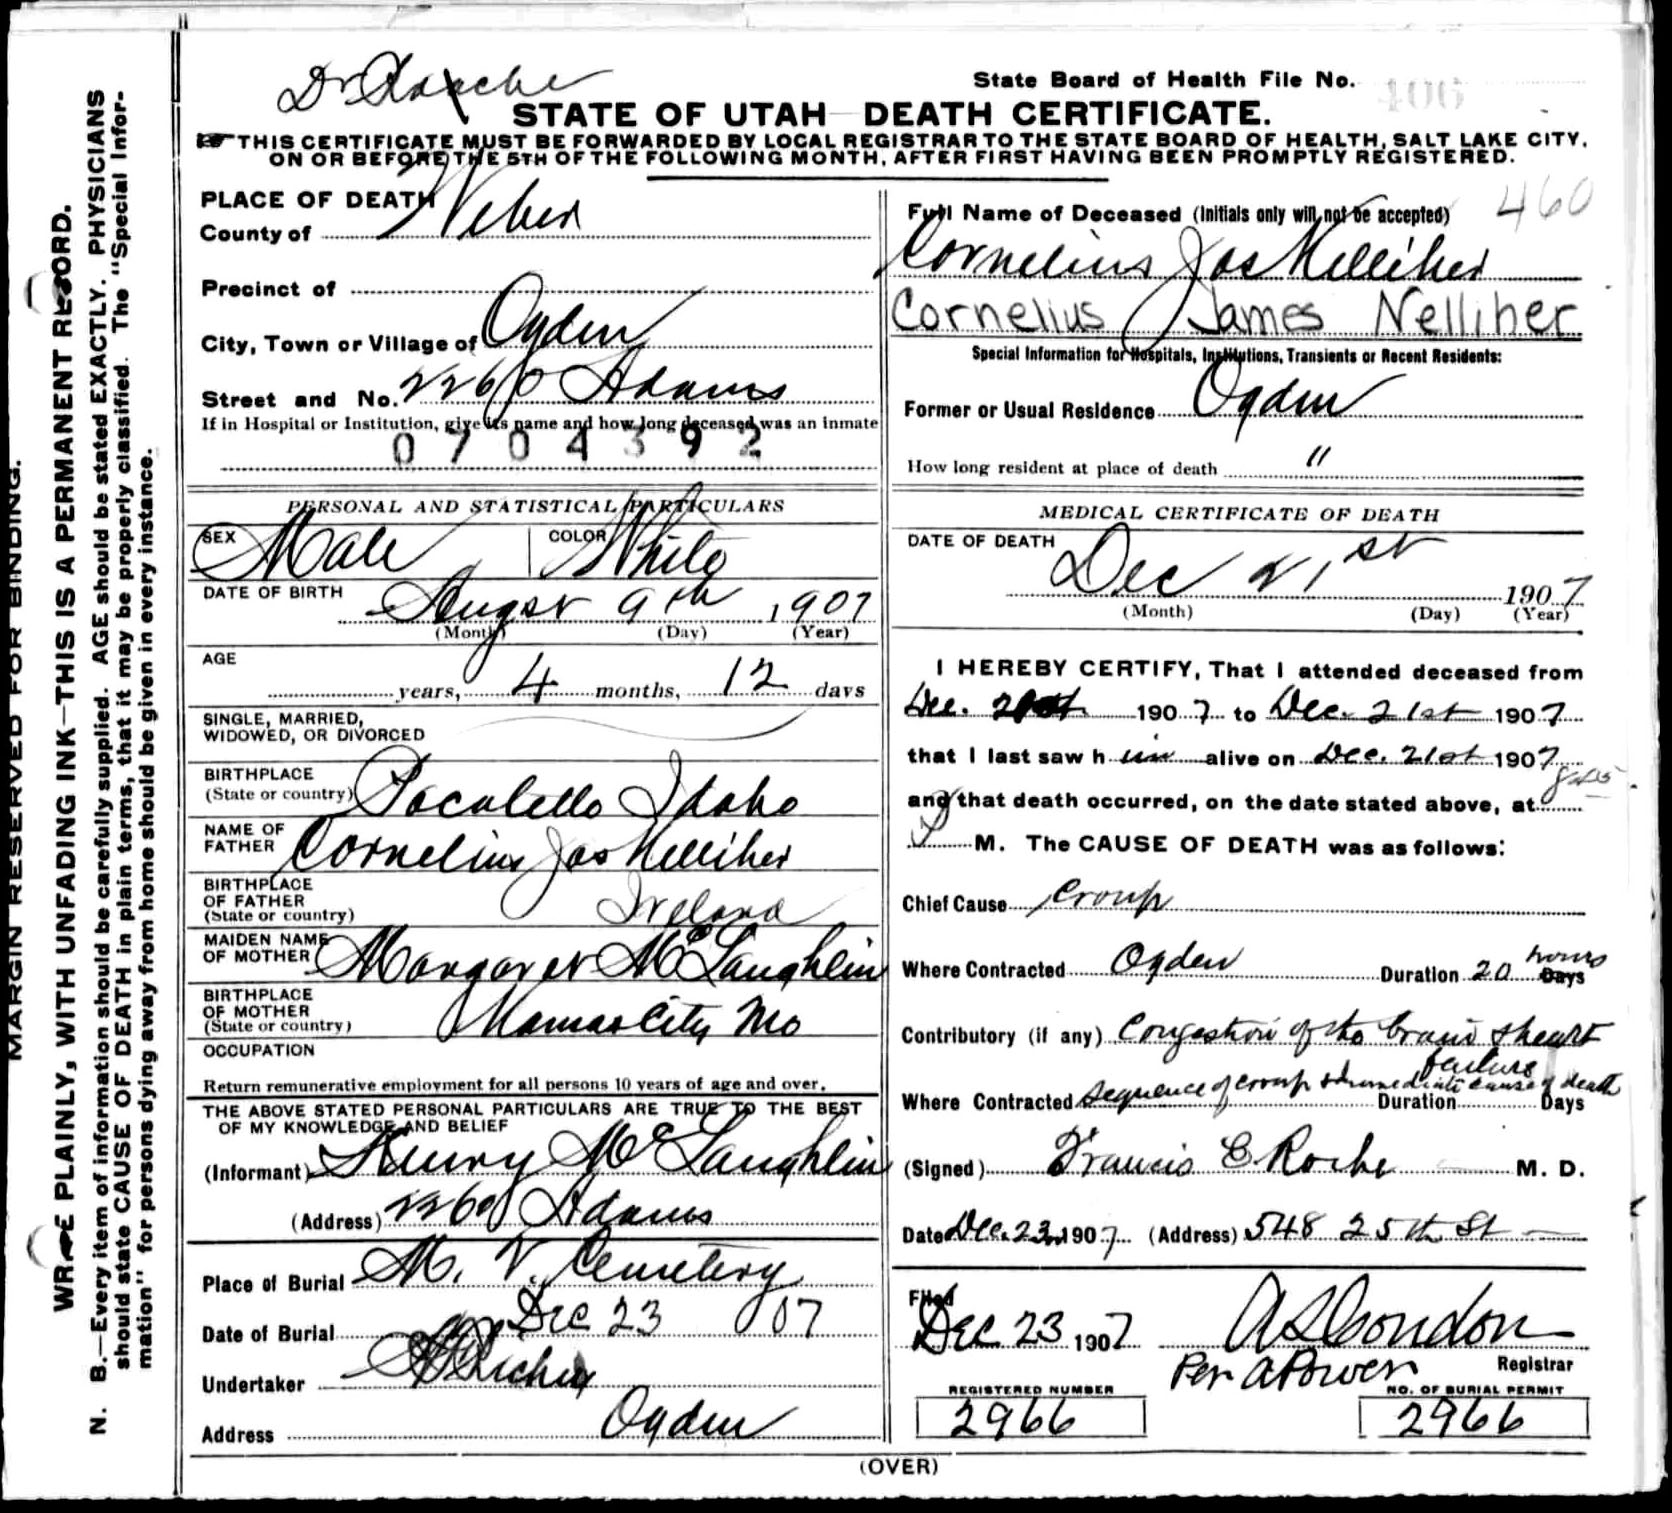 Dr Roache
State Board of Health File No. 406
STATE OF UTAH DEATH CERTIFICATE.
THIS CERTIFICATE MUST BE FORWARDED BY LOCAL REGISTRAR TO THE STATE BOARD OF HEALTH, SALT LAKE CITY,
ON OR BEFORE THE 5TH OF THE FOLLOWING MONTH, AFTER FIRST HAVING BEEN PROMPTLY REGISTERED.
MARGIN RESERVED FOR BINDING.
WRITE PLAINLY, WITH UNFADING INK—THIS IS A PERMANENT RECORD.
N. B.—Every item of information should be carefully supplied. AGE should be stated EXACTLY. PHYSICIANS
should state CAUSE OF DEATH in plain terms, that it may be properly classified. The "Special Infor-
mation" for persons dying away from home should be given in every instance.
PLACE OF DEATH
County of Weber
Precinct of
City, Town or Village of Ogden
Street and No. 2260 Adams
If in Hospital or Institution, give its name and how long deceased was an inmate
0704392
PERSONAL AND STATISTICAL PARTICULARS
SEX Male COLOR White
DATE OF BIRTH August 9th 1907
(Month) (Day) (Year)
AGE
years, 4 months, 12 days
SINGLE, MARRIED,
WIDOWED, OR DIVORCED
BIRTHPLACE
(State or country) Pocatello Idaho
NAME OF
FATHER Cornelius Jas Kelliher
BIRTHPLACE
OF FATHER
(State or country) Ireland
MAIDEN NAME
OF MOTHER Margaret McLaughlin
BIRTHPLACE
OF MOTHER
(State or country) Kansas City Mo
OCCUPATION
Return remunerative employment for all persons 10 years of age and over.
THE ABOVE STATED PERSONAL PARTICULARS ARE TRUE TO THE BEST
OF MY KNOWLEDGE AND BELIEF
(Informant) Henry McLaughlin
(Address) 2260 Adams
Place of Burial M. V. Cemetery
Date of Burial Dec 23 07
Undertaker
Address Ogden
460
Full Name of Deceased (Initials only will not be accepted)
Cornelius Jas Kelliher
Cornelius James Nelliher
Special Information for Hospitals, Institutions, Transients or Recent Residents:
Former or Usual Residence Ogden
How long resident at place of death "
MEDICAL CERTIFICATE OF DEATH
DATE OF DEATH
Dec 21st 1907
(Month) (Day) (Year)
I HEREBY CERTIFY, That I attended deceased from
Dec. 1907 to Dec. 21st 1907
that I last saw him alive on Dec. 21st 1907
and that death occurred, on the date stated above, at
M. The CAUSE OF DEATH was as follows:
Chief Cause Croup
Where Contracted Ogden Duration 20 hours Days
Contributory (if any) Congestion of the brain & heart
failure
Where Contracted Sequence of croup & immediate cause of death Duration Days
(Signed) Francis E. Roche M. D.
Date Dec. 23rd 1907 (Address) 548 25th St
Filed
Dec 23 1907 A S Condon
Per A Power Registrar
REGISTERED NUMBER NO. OF BURIAL PERMIT
2966 2966
(OVER)